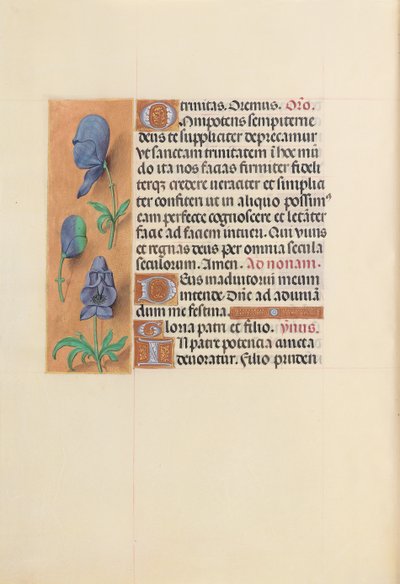 trinitas. Oremus. Oro.
Omnipotens sempiterne
deus te suppliciter deprecamur
ut sanctam trinitatem i hoc mū
do ita nos facias firmiter fideli
terq; credere ueraciter et simplicit
ter confiteri ut in aliquo possim9
eam perfecte cognoscere et letāter
facie ad faciem intueri. Qui viuis
et regnas deus per omnia secula
seculorum. Amen. Ad nonam.
Deus in adiutorium meum
intende. Dn̄e ad adiuuā
dum me festina.
Gloria patri et filio. ymus.
In patre potencia cuncta
denotatur. Filio pruden